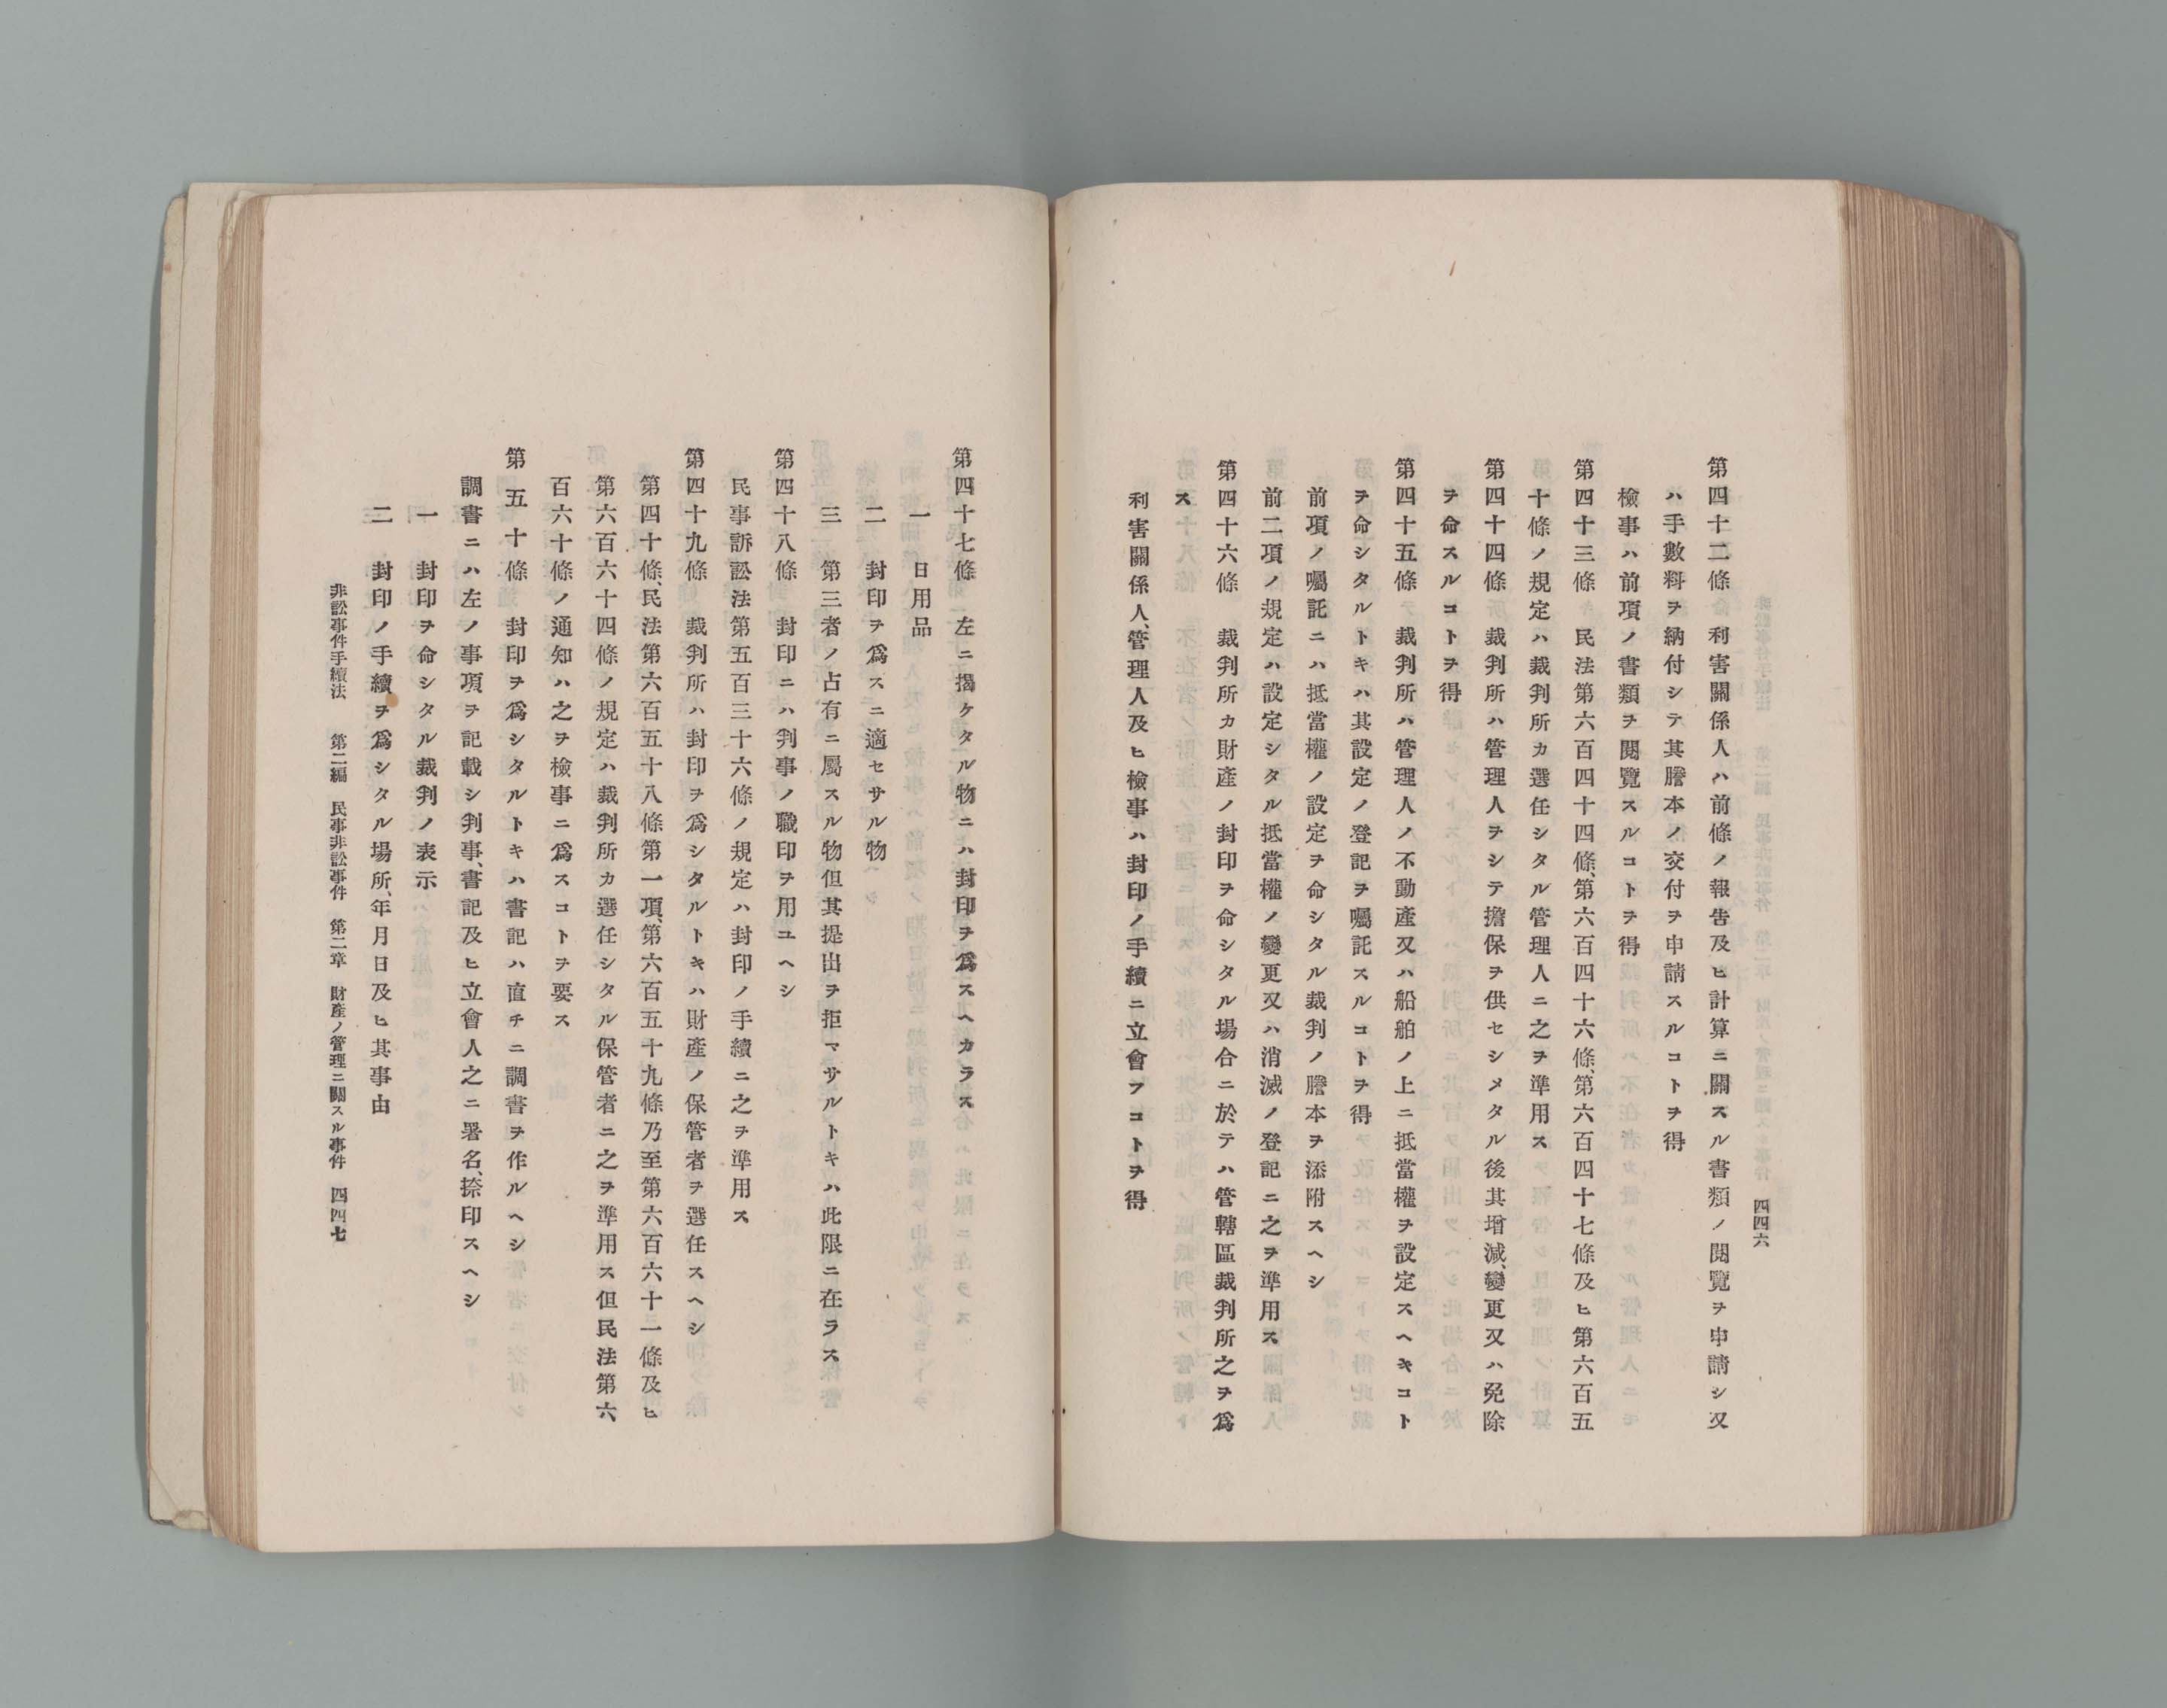 四四六
第四十二條　利害關係人ハ前條ノ報告及ヒ計算ニ關スル書類ノ閲覽ヲ申請シ又
ハ手數料ヲ納付シテ其謄本ノ交付ヲ申請スルコトヲ得
檢事ハ前項ノ書類ヲ閲覽スルコトヲ得
第四十三條　民法第六百四十四條、第六百四十六條、第六百四十七條及ヒ第六百五
十條ノ規定ハ裁判所カ選任シタル管理人ニ之ヲ準用ス
第四十四條　裁判所ハ管理人ヲシテ擔保ヲ供セシメタル後其增減、變更又ハ免除
ヲ命スルコトヲ得
第四十五條　裁判所ハ管理人ノ不動產又ハ船舶ノ上ニ抵當權ヲ設定スヘキコト
ヲ命シタルトキハ其設定ノ登記ヲ囑託スルコトヲ得
前項ノ囑託ニハ抵當權ノ設定ヲ命シタル裁判ノ謄本ヲ添附スヘシ
前二項ノ規定ハ設定シタル抵當權ノ變更又ハ消滅ノ登記ニ之ヲ準用ス
第四十六條　裁判所カ財產ノ封印ヲ命シタル場合ニ於テハ管轄區裁判所之ヲ爲
ス
利害關係人、管理人及ヒ檢事ハ封印ノ手續ニ立會フコトヲ得
第四十七條　左ニ揭ケタル物ニハ封印ヲ爲スヘカラス
一　日用品
二　封印ヲ爲スニ適セサル物
三　第三者ノ占有ニ屬スル物但其提出ヲ拒マサルトキハ此限ニ在ラス
第四十八條　封印ニハ判事ノ職印ヲ用ユヘシ
民事訴訟法第五百三十六條ノ規定ハ封印ノ手續ニ之ヲ準用ス
第四十九條　裁判所ハ封印ヲ爲シタルトキハ財產ノ保管者ヲ選任スヘシ
第四十條、民法第六百五十八條第一項、第六百五十九條乃至第六百六十一條及ヒ
第六百六十四條ノ規定ハ裁判所カ選任シタル保管者ニ之ヲ準用ス但民法第六
百六十條ノ通知ハ之ヲ檢事ニ爲スコトヲ要ス
第五十條　封印ヲ爲シタルトキハ書記ハ直チニ調書ヲ作ルヘシ
調書ニハ左ノ事項ヲ記載シ判事、書記及ヒ立會人之ニ署名、捺印スヘシ
一　封印ヲ命シタル裁判ノ表示
二　封印ノ手續ヲ爲シタル場所、年月日及ヒ其事由
非訟事件手續法　第二編　民事非訟事件　第二章　財產ノ管理ニ關スル事件　四四七